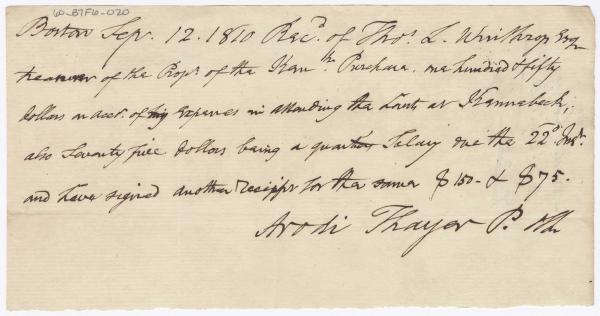 60-B7F6-020
Boston Sep. 12. 1810 Recd. of Thos. L. Winthrop Esqr
treasurer of the Props. of the Kenn. Purchase one hundred & fifty
dollars on acct. of my expenses in attending the Court at Kennebeck;
also Seventy five dollars being a quarters Salary due the 22d. Inst.
and have signed another receipt for the same $150- & $75-
Arodi Thayer